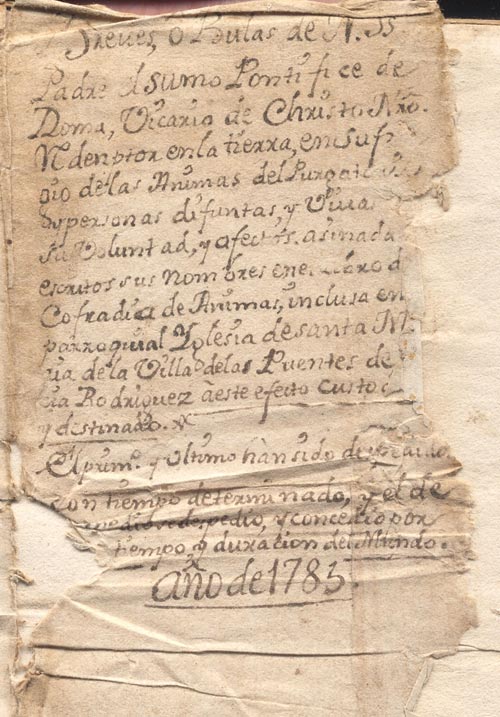 Breves, ò Bulas de N. SS
Padre el sumo Pontifice de
Roma, Vicario de Christo Nrō.
Rdenptor en la tierra, en suf
gio de las Animas del Purgat
y personas difuntas, y Vivas
su Voluntad, y afectos. asinada
escritos sus nombres en el Libro d
Cofradia de Animas, inclusa en
parroquial Yglesia de santa M.
ria de la Villa de las Puentes de
cia Rodriguez à este efecto custo
y destinado.
El prim.º y Ultimo hàn sido despedido
con tiempo determinado, y el de
medio, y concedio por
tiempo y duracion del Mundo.
año de 1785